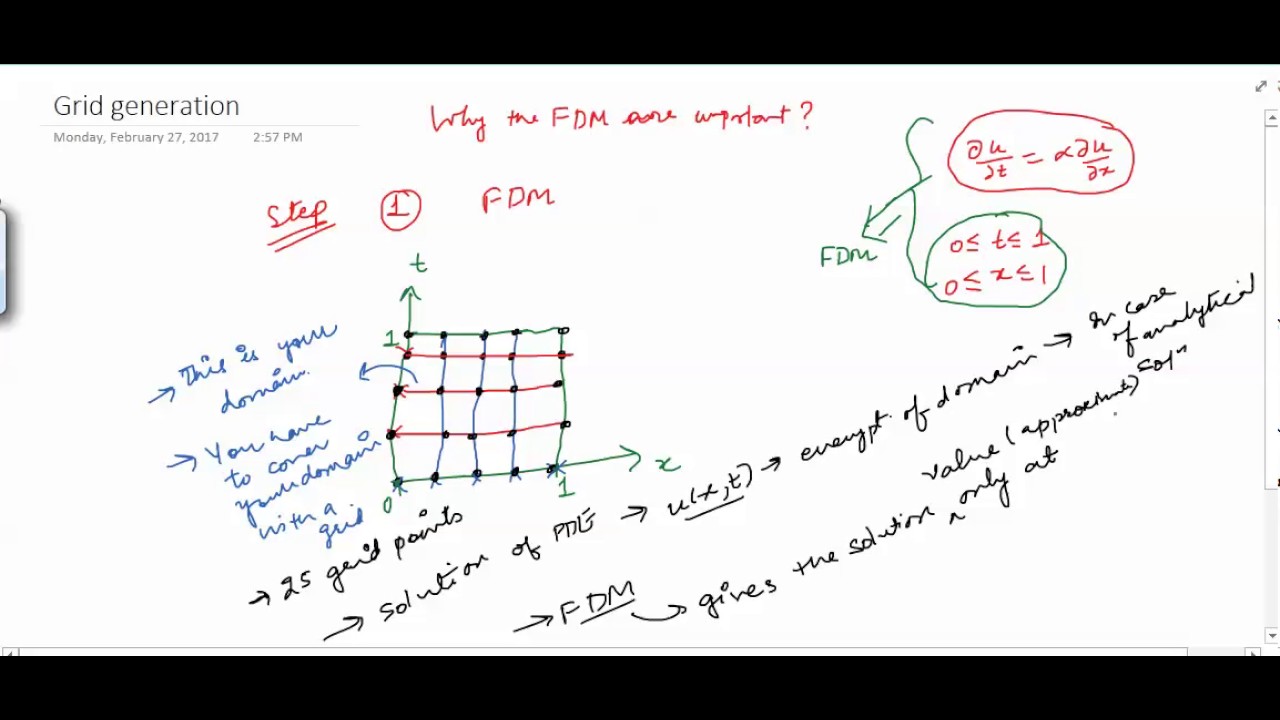 Grid generation
Monday, February 27, 2017 2:57 PM
Why the FDM are important?
∂u/∂t = α ∂u/∂x
0 ≤ t ≤ 1
0 ≤ x ≤ 1
FDM
Step 1 FDM
t
1
0
1
x
→ This is your
domain.
→ You have
to cover
your domain
with a
grid
→ 25 grid points
→ solution of PDE → u(x,t) → of domain → In case
of analytical
solⁿ
→ FDM → gives the solution only at
value (approximate)